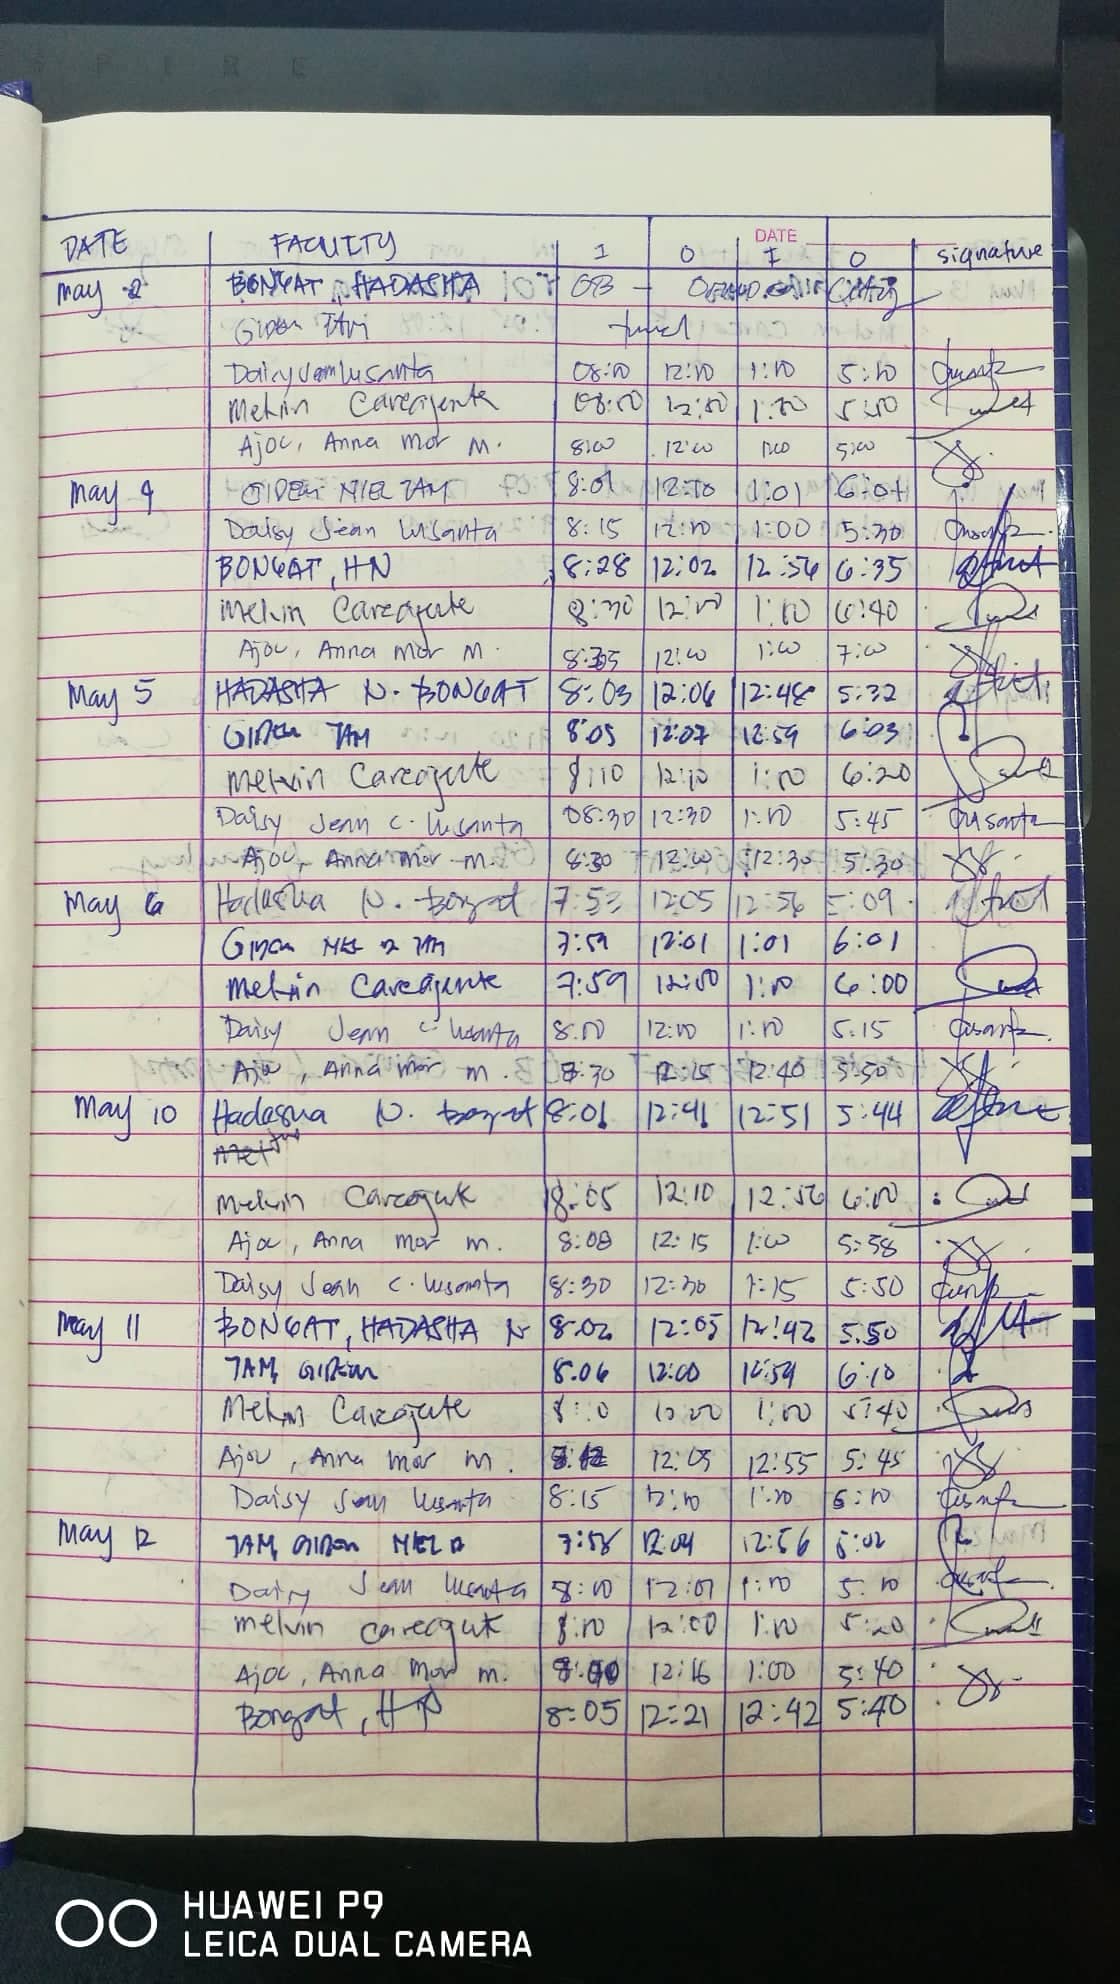 DATE
DATE FACULTY I O I O signature
May 2 BONGAT, HADASHA OB -
Giden Tam travel
Daisy Jean Lusanta 08:00 12:00 1:00 5:00
Melvin Carcajente 08:00 12:00 1:00 5:00
Ajoc, Anna Mar M. 8:00 12:00 1:00 5:00
May 4 GIDEN NIEL TAM 8:01 12:00 1:01 6:01
Daisy Jean Lusanta 8:15 12:00 1:00 5:30
BONGAT, HN 8:28 12:02 12:56 6:35
Melvin Carcajente 8:30 12:00 1:00 6:40
Ajoc, Anna Mar M. 12:00 1:00 7:00
May 5 HADASHA N. BONGAT 8:03 12:06 12:48 5:32
Giden TAM 8:05 12:07 12:59 6:03
Melvin Carcajente 8:10 12:10 1:00 6:20
Daisy Jean C. Lusanta 08:30 12:30 1:00 5:45 Lusanta
Ajoc, Anna Mar M. 8:30 12:00 12:30 5:30
May 6 Hadasha N. Bongat 7:53 12:05 12:56 5:09
Giden NIEL D TAM 7:59 12:01 1:01 6:01
Melvin Carcajente 7:59 12:00 1:00 6:00
Daisy Jean C. Lusanta 8:00 12:00 1:00 5:15
Ajoc, Anna Mar M. 8:30 12:15 12:40 5:50
May 10 Hadasha N. Bongat 8:01 12:41 12:51 5:44
Mel
Melvin Carcajente 8:05 12:10 12:56 6:00
Ajoc, Anna Mar M. 8:08 12:15 1:00 5:58
Daisy Jean C. Lusanta 8:30 12:30 1:15 5:50
May 11 BONGAT, HADASHA N 8:02 12:05 12:42 5:50
TAM, GIDEN 8:06 12:00 12:59 6:10
Melvin Carcajente 8:10 12:00 1:00 5:40
Ajoc, Anna Mar M. 12:05 12:55 5:45
Daisy Jean Lusanta 8:15 12:10 1:00 6:10
May 12 TAM, GIDEN NIEL D 7:58 12:04 12:56 5:02
Daisy Jean Lusanta 8:00 12:01 1:00 5:10
Melvin Carcajente 8:00 12:00 1:00 5:20
Ajoc, Anna Mar M. 12:16 1:00 5:40
Bongat, HN 8:05 12:21 12:42 5:40
HUAWEI P9
LEICA DUAL CAMERA